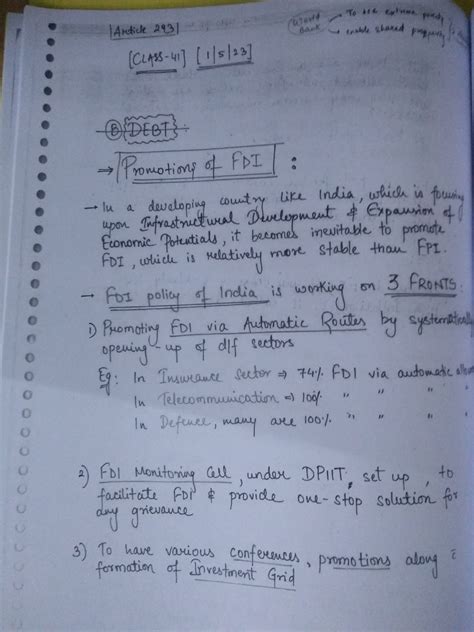 Article 293
World Bank → To use extreme poverty
→ enable shared prosperity
[CLASS-41] [1/5/23]
B DEBT
→ Promotions of FDI :
→ In a developing country like India, which is focusing
upon Infrastructural Development & Expansion of
Economic Potentials, it becomes inevitable to promote
FDI, which is relatively more stable than FPI.
→ FDI policy of India is working on 3 FRONTS:
1) Promoting FDI via Automatic Routes by systematically
opening-up of d/f sectors
Eg: In Insurance Sector ⇒ 74% FDI via automatic
In Telecommunication ⇒ 100% " " "
In Defence, many are 100% " " "
2) FDI Monitoring Cell, under DPIIT, set up, to
facilitate FDI & provide one-stop solution for
any grievance
3) To have various conferences, promotions along
formation of Investment Grid